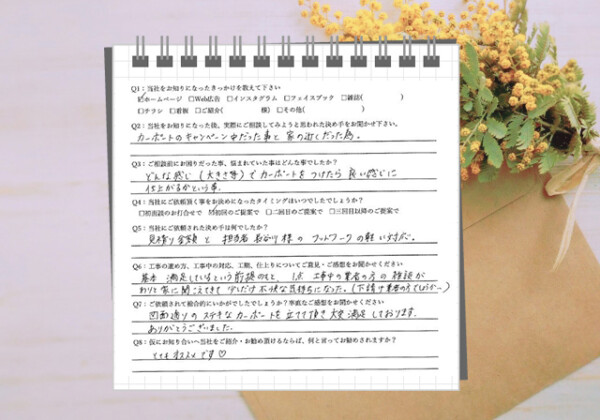 Q1：当社をお知りになったきっかけを教えて下さい
☑ホームページ □Web広告 □インスタグラム □フェイスブック □雑誌( )
□チラシ □看板 □ご紹介( 様) □その他( )
Q2：当社をお知りになった後、実際にご相談してみようと思われた決め手をお聞かせ下さい。
カーポートのキャンペーン中だった事と家の近くだった為。
Q3：ご相談前にお困りだった事、悩まれていた事はどんな事でしたか？
どんな感じ(大きさ等)でカーポートをつけたら良い感じに
仕上がるかという事.
Q4：当社にご依頼頂く事をお決めになったタイミングはいつでしたでしょうか？
□初回談のお打合せで ☑初回のご提案で □二回目のご提案で □三回目以降のご提案で
Q5：当社にご依頼された決め手は何でしたか？
見積り金額と担当者 長谷川様のフットワークの軽い対応.
Q6：工事の進め方、工事中の対応、工期、仕上りについてご意見・ご感想をお聞かせください
基本 満足しているという前提のもと、1点 工事中の業者の方の雑談が
わりと家に聞こえてきて少しだけ不快な気持ちになった。(下請け業者の方でしょうが…)
Q7：ご依頼されて総合的にいかがでしたでしょうか？率直なご感想をお聞かせください
図面通りのステキなカーポートを立てて頂き大変満足しております.
ありがとうございました.
Q8：仮にお知り合いへ当社をご紹介・お勧め頂けるならば、何と言ってお勧めされますか？
とてもオススメです♡